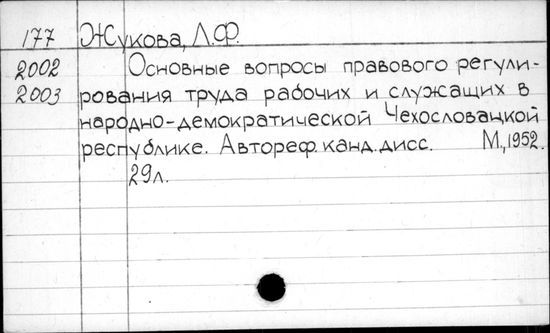 177 Жукова, Л.Ф.
2002 Основные вопросы правового регули-
2003 рования труда рабочих и служащих в
народно-демократической Чехословацкой
республике. Автореф. канд. дисс. М., 1952.
29л.